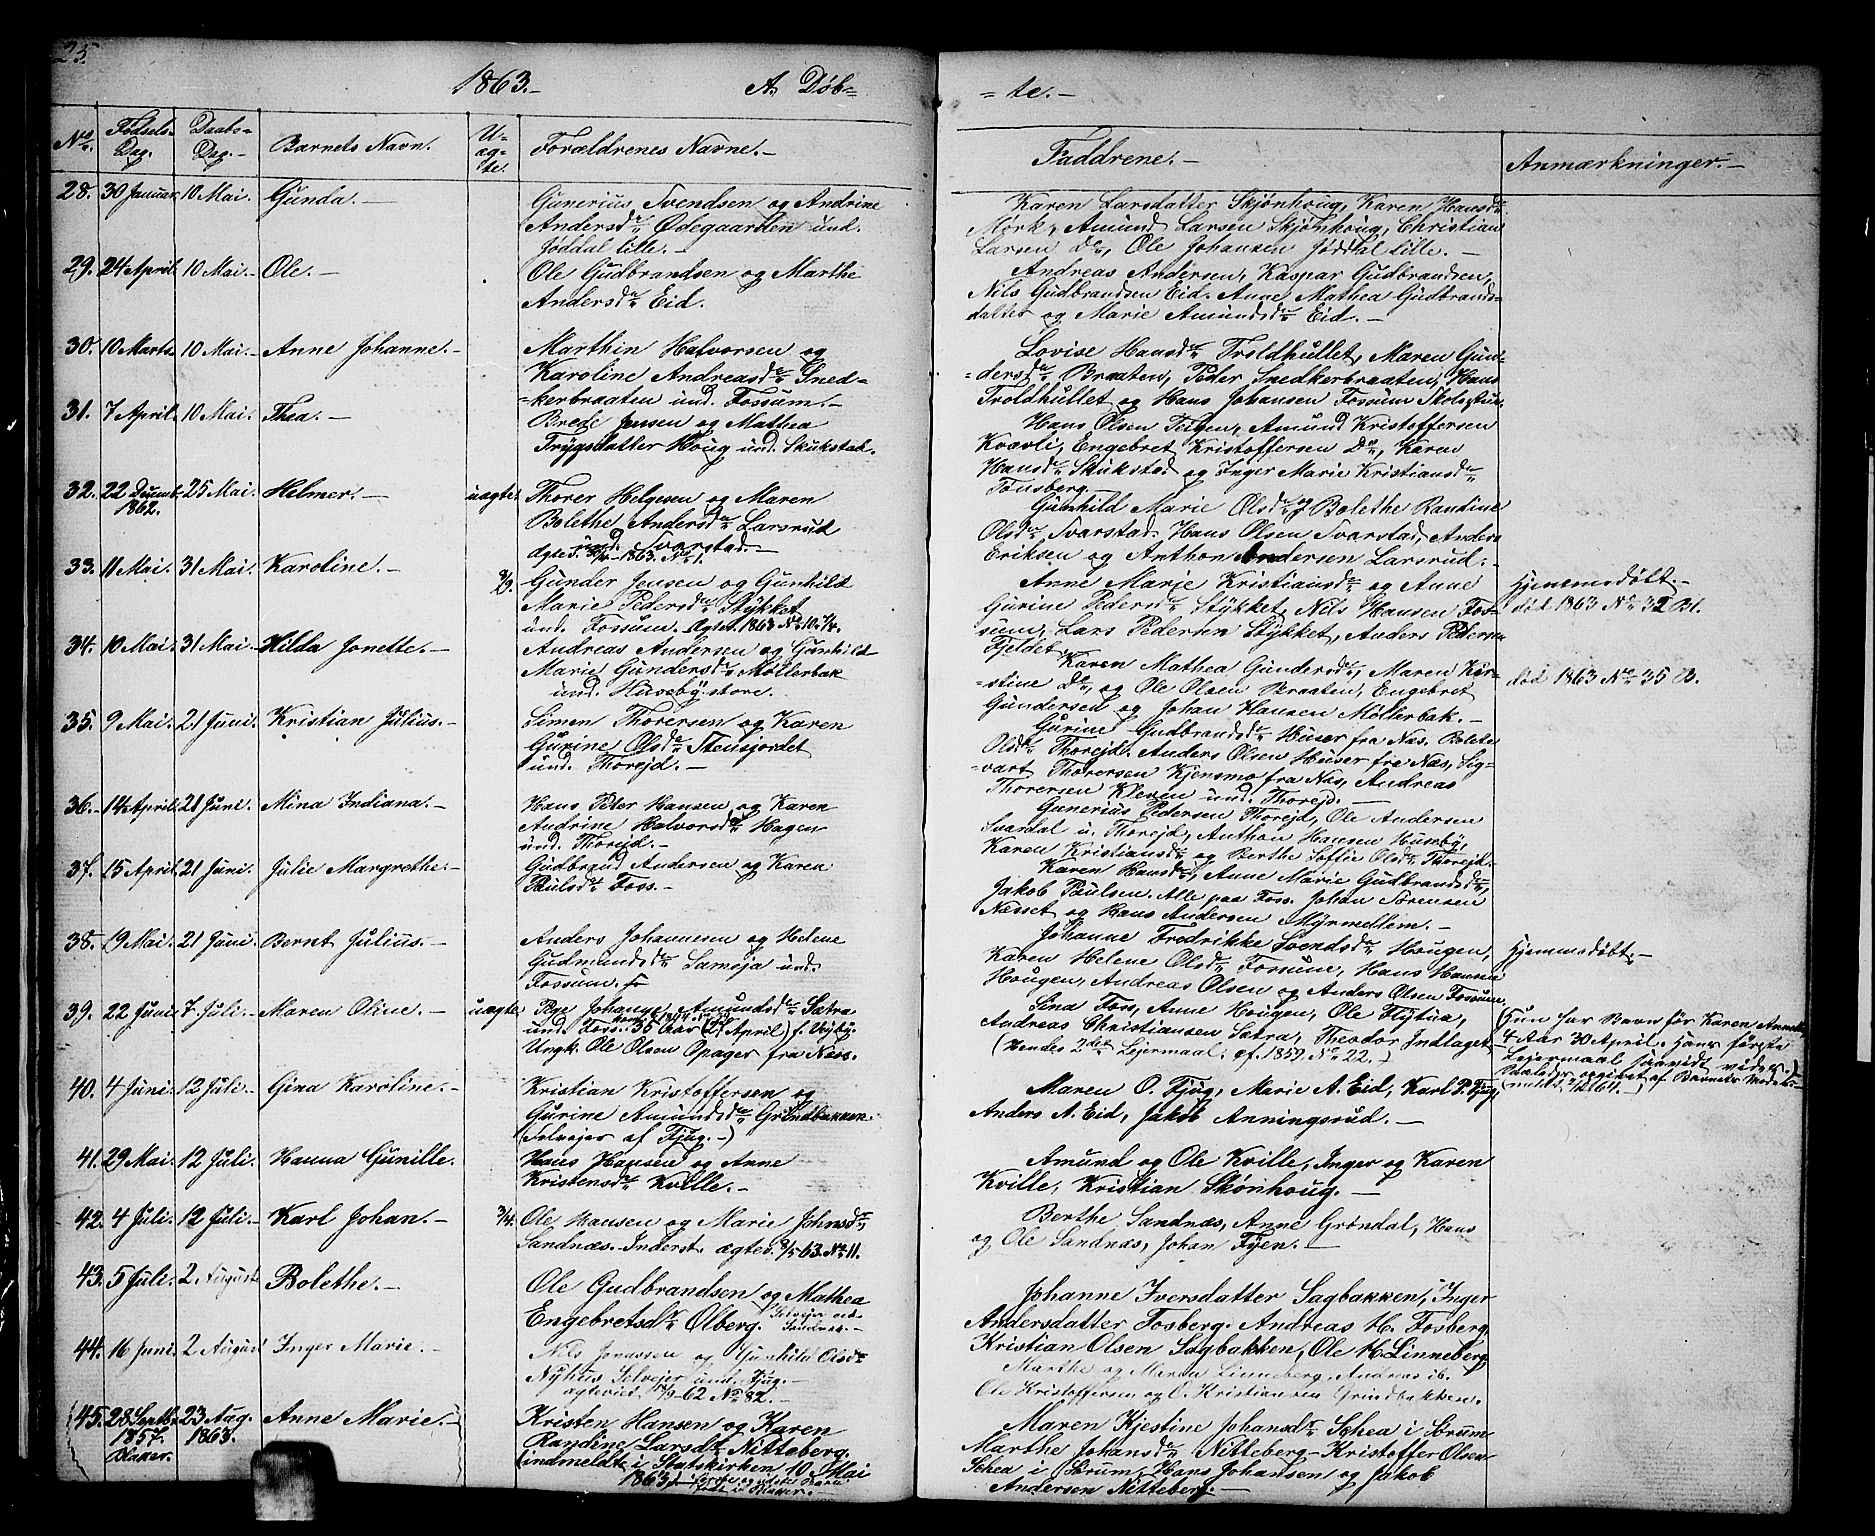 25.
1863.- A. Døb=
= te.-
No. Fødsels- Dag. Daabs- Dag.- Barnets Navn. U= æg= te. Forældrenes Navne.- Faddrene.- Anmærkninger.-
28. 30 Januar. 10 Mai. Gunda.-
Gunerius Svendsen og Andrine
Andersdr Ødegaarden und.
Joddal lille.-
Karen Larsdatter Skjønhoug, Karen Hansdr
Mørk, Amund Larsen Skjønhoug, Christian
Larsen Do, Ole Johansen Joddal lille.-
29. 24 April. 10 Mai.- Ole.-
Ole Gudbrandsen og Marthe
Andersdr Eid.
Andreas Andersen, Kaspar Gudbrandsen,
Nils Gudbrandsen Eid. Anne Mathea Gudbrands-
datter og Marie Amundsdr Eid.-
30. 10 Marts. 10 Mai.- Anne Johanne.-
Marthin Halvorsen og
Karoline Andreasdr Sned=
=kerbraaten und. Fossum.-
Lovise Hansdr Troldhullet, Maren Gun-
=dersdr Braaten, Peder Snedkerbraaten, Hans
Troldhullet og Hans Johansen Fossum
31. 7 April. 10 Mai.- Thea.-
Brede Jensen og Mathea
Trygsdatter Houg und. Skukstad.
Hans Olsen Teigen, Amund Kristoffersen
Kvævli, Engebret Kristoffersen Do, Karen
Hansdr Skukstad og Inger Marie Kristiansdr
Tønsberg.
32. 22 Decemb. 1862. 25 Mai.- Helmer.- uægte.
Thorer Helgesen og Maren
Bolethe Andersdr Larsrud
und. Svarstad.-
1863. No 1.
Gunhild Marie Olsdr og Bolethe Randine
Olsdr Svarstad. Hans Olsen Svarstad, Anders
Eriksen og Anthon Andersen Larsrud.-
33. 11 Mai. 31 Mai. Karoline.-
Gunder Jensen og Gunhild
Marie Pedersdr Stykket
und. Fossum. Ægtev. 1863 No 10.
Anne Marie Kristiansdr og Anne
Gurine Pedersdr Stykket, Nils Hansen Fos-
sum, Lars Pedersen Stykket, Anders Pedersen
Fjeldet.
Hjemmedøbt.-
død 1863 No 32 B1.
34. 10 Mai. 31 Mai.- Hilda Jonette.-
Andreas Andersen og Gunhild
Marie Gundersdr Møllerbak
und. Huseby store.
Karen Mathea Gundersdr, Maren Kir-
=stine Do og Ole Olsen Braaten, Engebret
Gundersen og Johan Hansen Møllerbak.-
død 1863 No 35 B.
35. 9 Mai. 21 Juni. Kristian Julius.-
Simen Thorersen og Karen
Gurine Olsdr Stensjordet
und. Thorejd.-
Gurine Gudbrandsdr Huser fra Næs. Bolette
Olsdr Thorejd. Anders Olsen Huser fra Næs, Sig-
=vart Thorersen Kjensmo fra Næs, Andreas
Thorersen Kleven und. Thorejd.-
36.- 14 April. 21 Juni. Mina Indiana.-
Hans Peter Hansen og Karen
Andrine Halvorsdr Hagen
und. Thorejd.-
Gunerius Pedersen Thorejd, Ole Andersen
Svardal u. Thorejd, Anthon Hansen Huseby,
Karen Kristiansdr og Berthe Sofie Olsdr Thorejd.-
37. 15 April. 21 Juni. Julie Margrethe.-
Gudbrand Andersen og Karen
Paulsdr Foss.-
Karen Hansdr, Anne Marie Gudbrandsdr,
Jakob Paulsen. Alle paa Foss. Johan Sørensen
Næsset og Hans Andersen Myrmellem.-
38. 19 Mai. 21 Juni.- Bernt Julius.-
Anders Johannesen og Helene
Gudmundsdr Sameja und.
Fossum.
Johanne Fredrikke Svendsdr Hougen,
Karen Helene Olsdr Fossum, Hans Hansen
Hougen, Andreas Olsen og Anders Olsen Fossum.
Hjemmedøbt.-
39. 22 Juni 7 Juli.- Maren Oline.- uægte
Pige Johanne Amundsdr Sætra
und. Foss. 35 Aar (27 April)
Ungk. Ole Olsen Opager fra Næss.
Sina Foss, Anne Hougen, Ole Flytua,
Andreas Christiansen Sætra, Theodor Indlaget
(Hendes 2det Lejermaal; cf. 1859. No 22.-)
(Hun har Barn før Karen
4 Aar 30 April. Hans første
Lejermaal saavidt vides.
opgivet af Barnets Moder
40. 4 Juni. 12 Juli.- Gina Karoline.-
Kristian Kristoffersen og
Gurine Amundsdr Grindbakken.
(Selvejer af Fjug.-)
Maren O. Fjug, Marie A. Eid, Karl P. Fjug,
Anders A. Eid, Jakob Anningsrud.-
41. 29 Mai. 12 Juli. Hanna Gunille.
Hans Hansen og Anne
Kristensdr Kville.-
Amund og Ole Kville, Inger og Karen
Kville, Kristian Skønhoug.-
42. 4 Juli. 12 Juli.- Karl Johan.- 3/4.
Ole Hansen og Marie Johnsdr
Sandnæs. Inderst. ægtev. 63. No 11.
Berthe Sandnæs, Anne Grøndal, Hans
og Ole Sandnæs, Johan Fjen.-
43. 5 Juli. 2 August Bolethe.-
Ole Gudbrandsen og Mathea
Engebretsdr Ølberg. Selvejer
Johanne Iversdatter Sagbakken, Inger
Andersdatter Fosberg. Andreas H. Fosberg,
Kristian Olsen Sagbakken, Ole H. Linneberg
44. 16 Juni. 2 August Inger Marie.-
Nils Jonassen og Gunhild Olsdr
Nyhus Selvejer und. Fjug.-
ægteviet 62 No 82.-
Marthe og Maren Linneberg. Andreas ib.
Ole Kristoffersen og O. Kristiansen Grindbakken.
45. 28 Septbr. 1857. Blaker. 23 Aug. 1863. Anne Marie.-
Kristen Hansen og Karen
Randine Larsdr Nitteberg.
indmeldt i Statskirken 10 Mai
1863
Maren Kjestine Johansdr Schea i Sørum
Marthe Johansdr Nitteberg- Kristoffer Olsen
Schea i Sørum, Hans Johansen og Jakob
Andersen Nitteberg.-